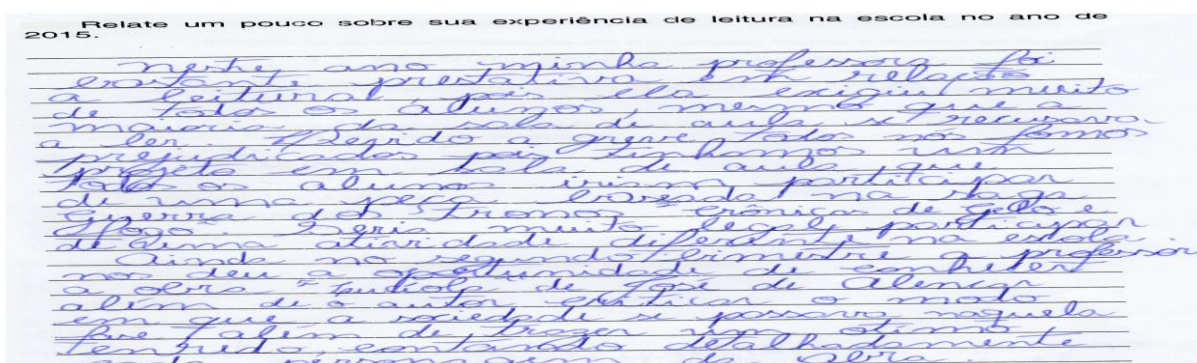 Relate um pouco sobre sua experiência de leitura na escola no ano de
2015.
Neste ano minha professora foi
bastante prestativa em relação
a leitura, pois ela exigiu muito
de todos os alunos, mesmo que a
maioria da sala de aula se recusava
a ler. Devido a greve todos nós fomos
prejudicados pois tinhamos um
projeto em sala de aula que
todos os alunos iriam participar
de uma peça baseada na saga
Guerra dos Tronos "Crônicas de Gelo e
Fogo". Seria muito legal participar
de uma atividade diferente na escola
Ainda no segundo bimestre a professora
nos deu a oportunidade de conhecer
a obra de José de Alencar
além de o autor criticar o modo
em que a sociedade se passava naquela
além de trazer um ótimo
contando detalhadamente
personagem da obra.